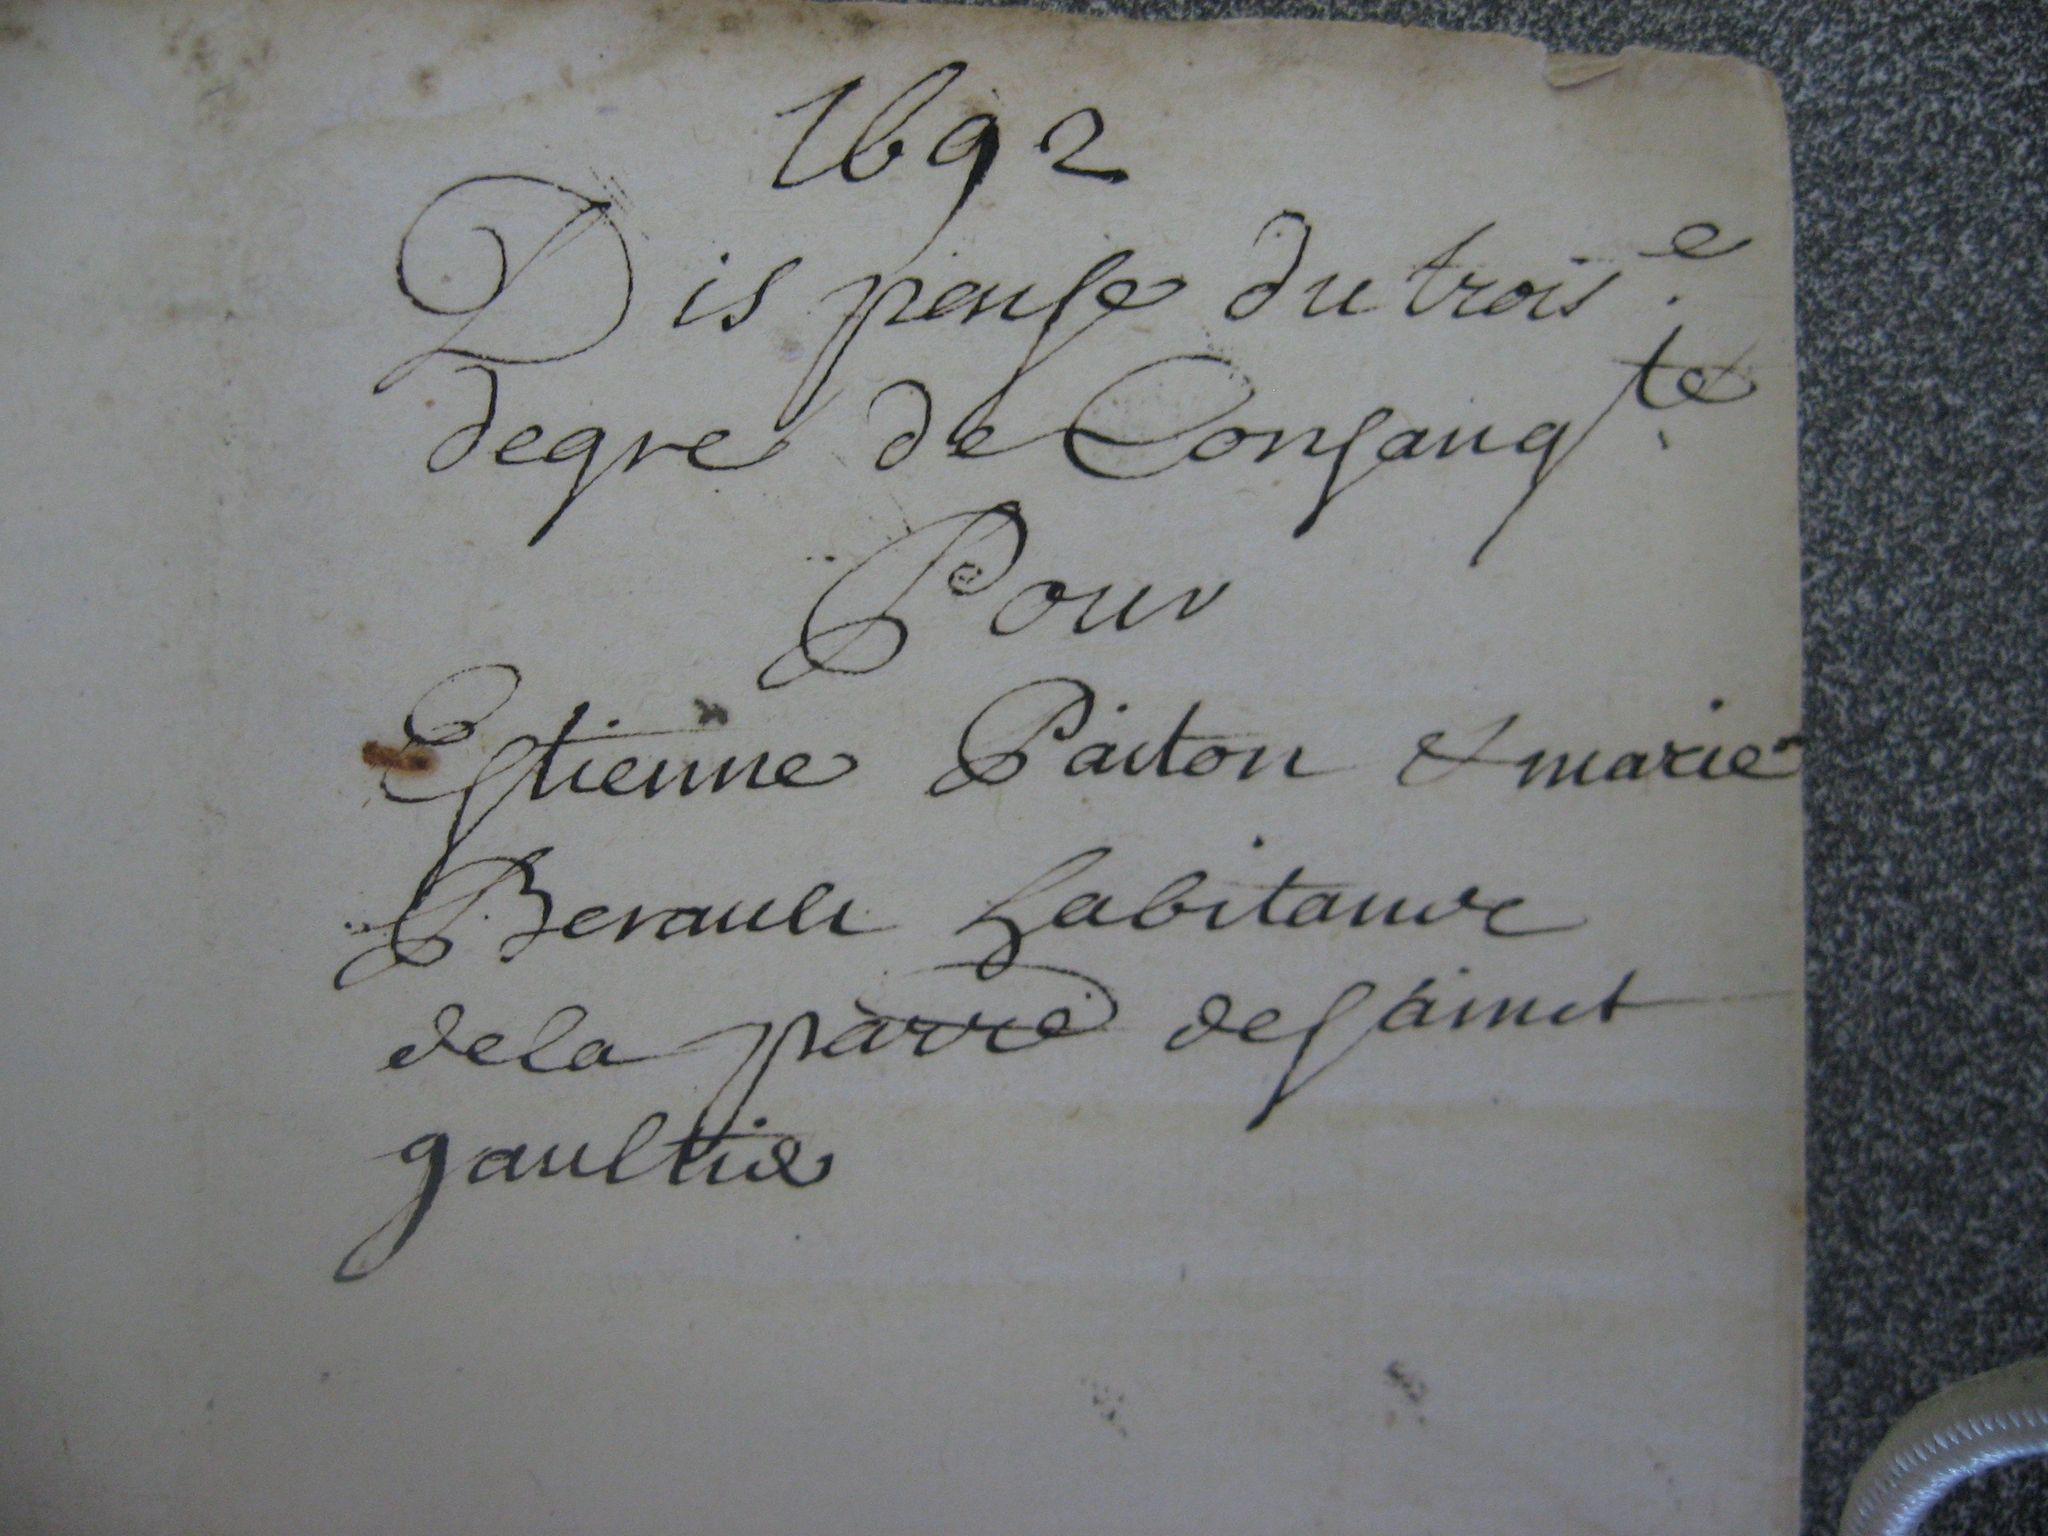 1692
Dispense du trois.e
degre de Consang.te
Pour
Estienne Paiton & marie
Berault habitans
de la parre de saint
gaultie